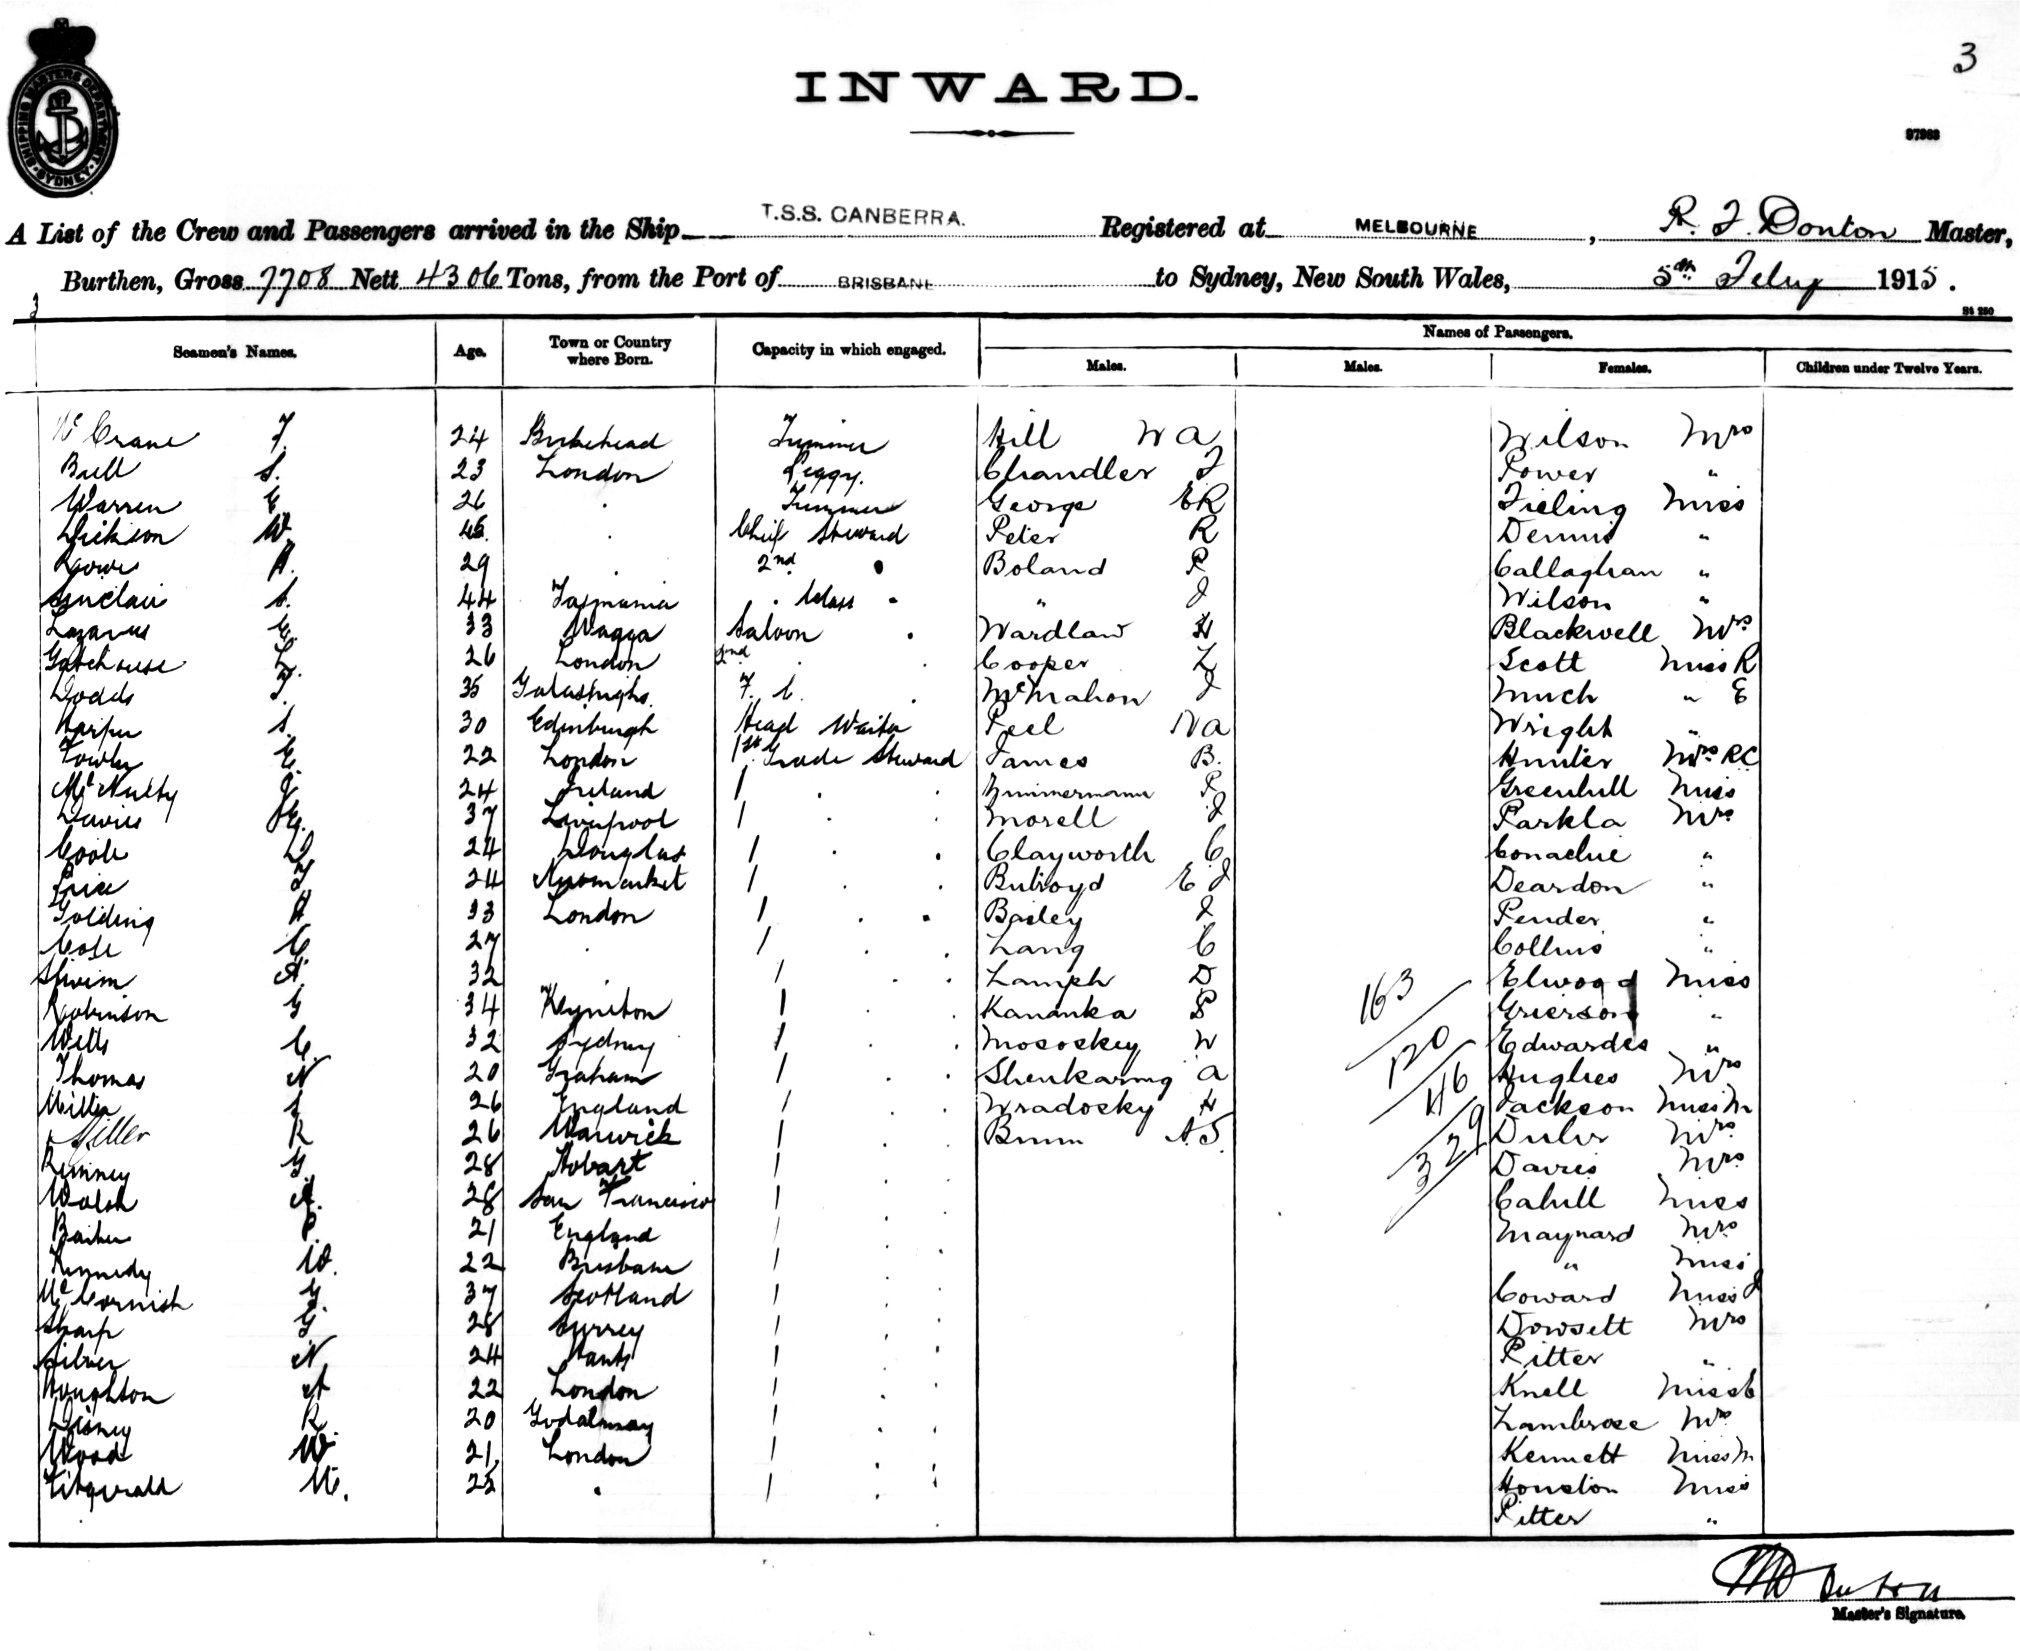 3
INWARD.
SHIPPING MASTERS DEPARTMENT SYDNEY
97963
A List of the Crew and Passengers arrived in the Ship T.S.S. CANBERRA. Registered at MELBOURNE, R. J. Donton Master,
Burthen, Gross 7708 Nett 4306 Tons, from the Port of BRISBANE to Sydney, New South Wales, 5th Feby 1915.
3
Names of Passengers.
Seamen's Names. Age. Town or Country where Born. Capacity in which engaged. Males. Males. Females. Children under Twelve Years.
McCrane F. 24 Birkehead Trimmer Hill W A Wilson Mrs
Bull S. 23 London Peggy. Chandler J Power "
Warren E 26 . Trimmer George ER Fieling Miss
Dickson W. 45. . Chief Steward Peter R Dennis "
Rowe A. 29 . 2nd . Boland P Callaghan "
Sinclair S. 44 Tasmania . Class . " J Wilson "
Lazarus E. 33 Wagga Saloon . Wardlaw H Blackwell Mrs
Gatehouse L. 26 London 2nd . . Cooper Z Scott Miss R
Dodds F. 35 F. C. . McMahon J Much " E
Harper S. 30 Edinburgh Head Waiter Peel Wa Wright "
Fowler E. 22 London 1st Grade Steward James B. Hunter Mrs RC
McNulty J. 24 Ireland 1 . . Zimmermann P Greenhill Miss
Davies 37 Liverpool 1 . . Morell J Parkla Mrs
Coole D 24 Douglas 1 . . Clayworth C Conachie "
Price J 24 Newmarket 1 . . Butroyd E J Deardon "
Golding A. 33 London 1 . . Bailey J Pender "
Cose C 27 . 1 . . Lang C Collins "
A. 32 . 1 . . Lamph D Elwood Miss
Robinson G 34 Kyneton 1 . Kananka S 163 Grierson "
Wells C. 32 Sydney 1 . . Mososkey W 120 Edwardes "
Thomas N 20 Graham 1 . . Shenkaring A 46 Hughes Mrs
Miller S 26 England 1 . . Wradosky H Jackson Miss M
Miller R 26 Warwick 1 . . Brum A.S. 329 Duler Mrs
Rumney G. 28 Hobart 1 . . Davies Mrs
Walsh A. 28 San Francisco 1 . . Cahill Miss
Barker P. 21 England 1 . . Maynard Mrs
Kennedy W. 22 Brisbane 1 . . " Miss
McCornish G. 37 Scotland 1 . . Coward Miss J
Sharp G. 28 Surrey 1 . . Dowsett Mrs
Silver N 24 Hants 1 . . Ritter "
Houghton A 22 London 1 . . Knell Miss C
Disney R. 20 Godalmay 1 . . Lambrose Mrs
Wood W. 21 London 1 . . Kennett Miss M
Fitzgerald M. 25 . 1 . . Houston Miss
Ritter "
Master's Signature.